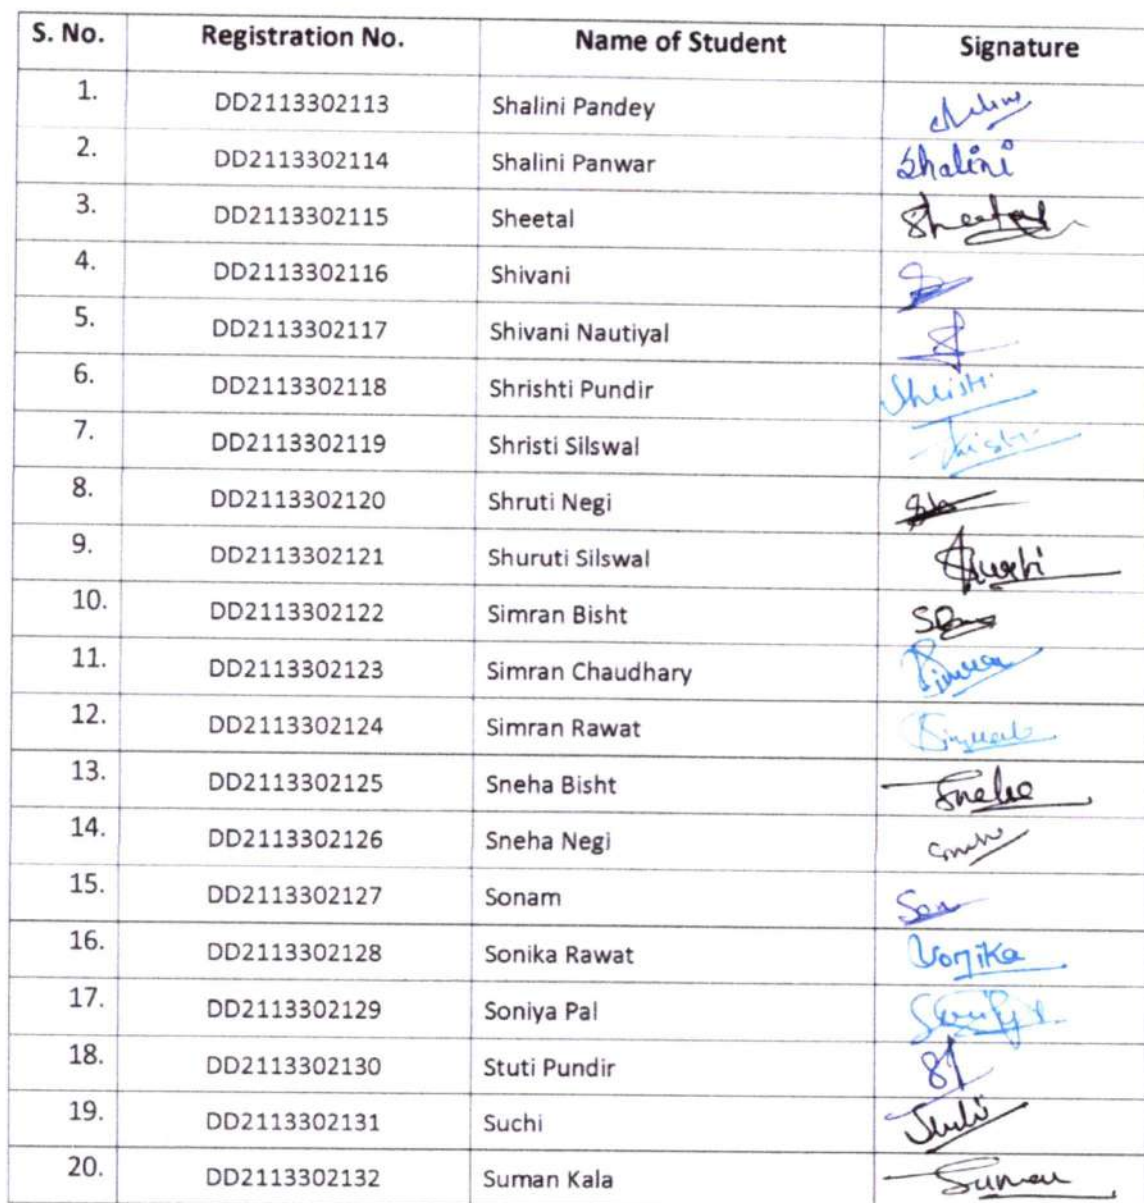 S. No. Registration No. Name of Student Signature
1. DD2113302113 Shalini Pandey
2. DD2113302114 Shalini Panwar Shalini
3. DD2113302115 Sheetal Sheetal
4. DD2113302116 Shivani
5. DD2113302117 Shivani Nautiyal
6. DD2113302118 Shrishti Pundir
7. DD2113302119 Shristi Silswal
8. DD2113302120 Shruti Negi
9. DD2113302121 Shuruti Silswal
10. DD2113302122 Simran Bisht
11. DD2113302123 Simran Chaudhary Simran
12. DD2113302124 Simran Rawat
13. DD2113302125 Sneha Bisht Sneha
14. DD2113302126 Sneha Negi
15. DD2113302127 Sonam
16. DD2113302128 Sonika Rawat Sonika
17. DD2113302129 Soniya Pal
18. DD2113302130 Stuti Pundir
19. DD2113302131 Suchi
20. DD2113302132 Suman Kala Suman